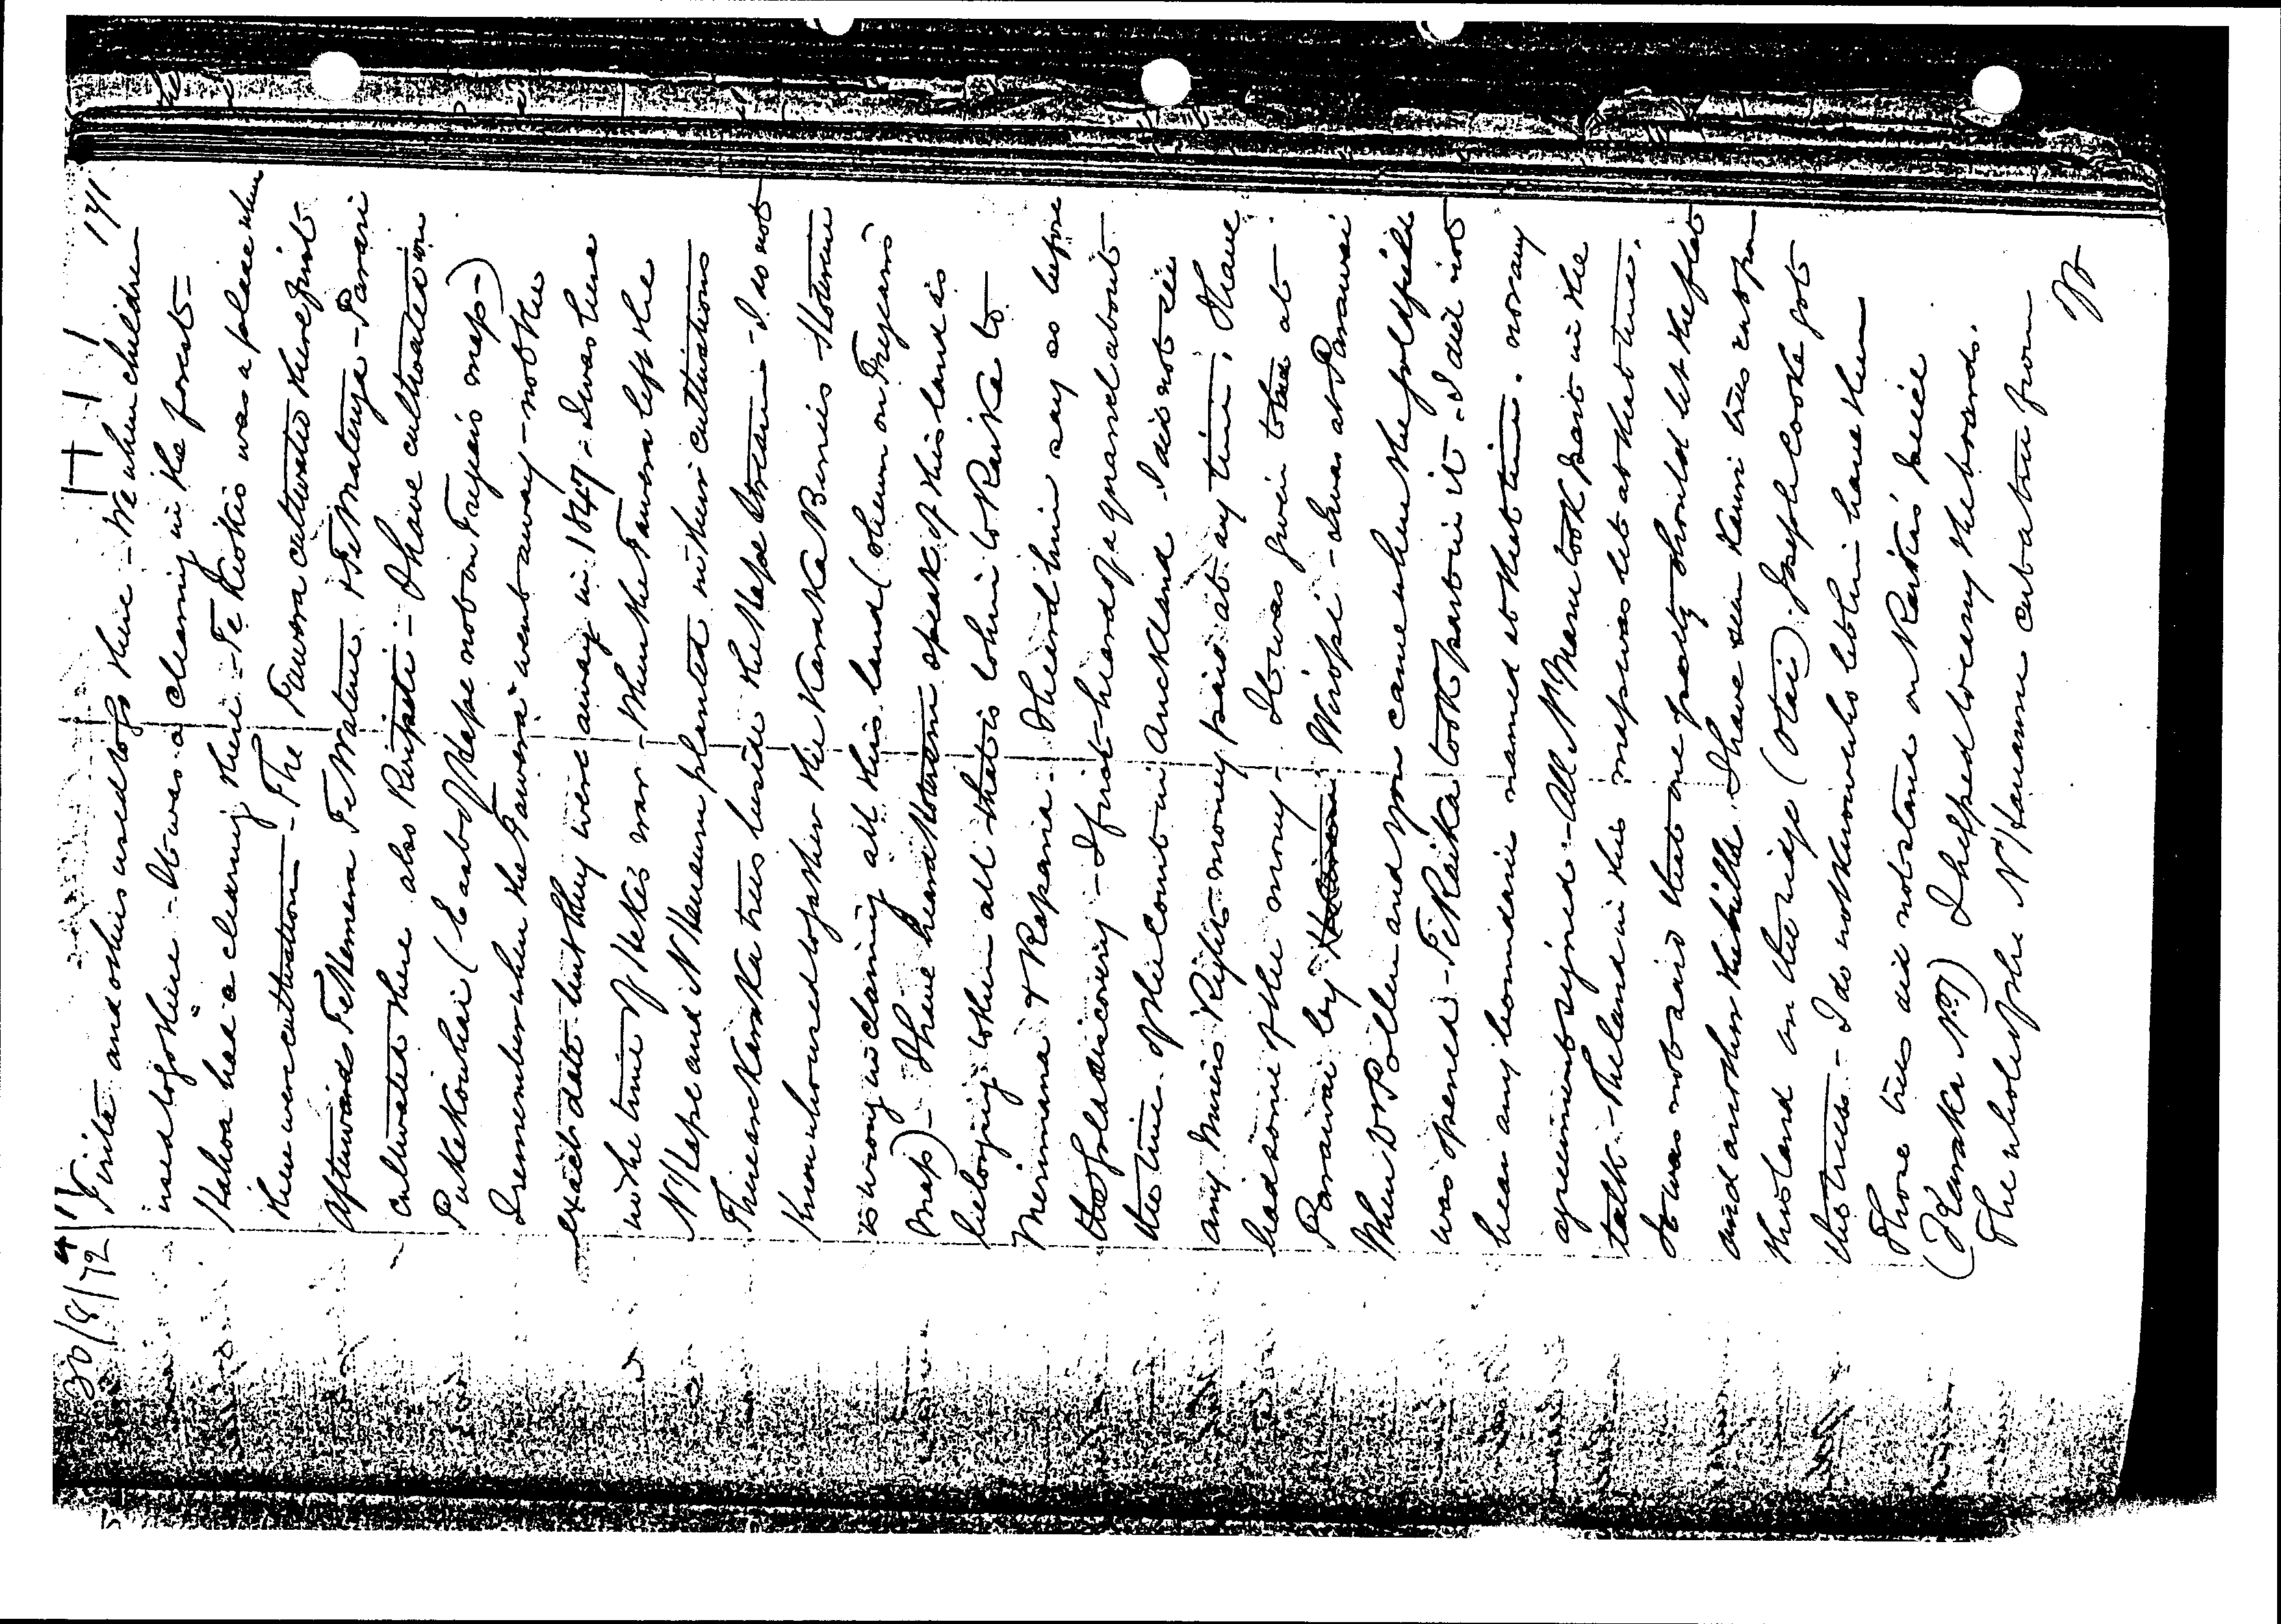 30/8/72 171
and others used to go there - We when children
used to go there - It was a clearing in the forest -
had a clearing there - was a place where
there were cultivation - The Tawera cultivated there first
Afterwards Te Matenga - Paraire
cultivated there also - I have cultivated on
Pukekowhai (East of Hape not on Tregear's map -)
I remember when the Tawera went away - not the
exact date but they were away in 1847 - I was here
in the time of Heke's war - When the Tawera left the
N'Hape and N' planted in their cultivations
There are Karaka trees beside the Hape Stream - I do not
know who used to gather the Karaka Berries Hoterene
is wrong in claiming all this land (shewn on Tregear's
map) - I have heard Hoterene speak of this land as
belonging to him all that is to him to Raika to
Meremana & Rapana - I heard him say so before
the gold discovery - I first heard of a quarrel about
the time of the Court in Auckland. I did not see
any Miners Right money paid at any time. I have
had some of the money - It was given to me at
Parawai by Wiropi - I was at Parawai
When Dr Pollen and you came when the goldfield
was opened - Te Raika took part in it - I did not
hear any boundaries named at that time. nor any
agreement signed - All N'Maru took part in the
talk - The land in this map was let at that time.
It was not said that one party should let the flat
and another the hills. I have seen Kauri trees cut from
this land on the ridge (Otai). Joseph Cooke got
the trees. - I do not know who let him have them
Those trees did not stand on Raika's piece
(Karaka No. 1) I helped to carry the boards.
The whole of the N'Hauauru cut a tree from